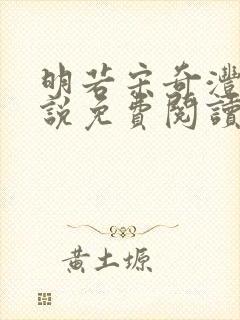 明若宗奇灃
說免費閱讀
黃土塬